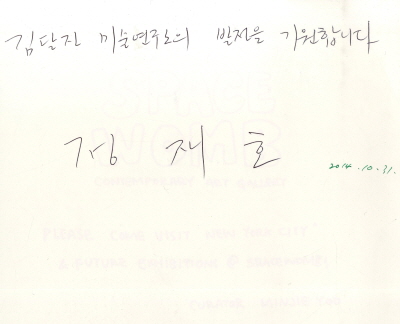 김달진 미술연구소의 발전을 기원합니다
정 재 호 2014.10.31.